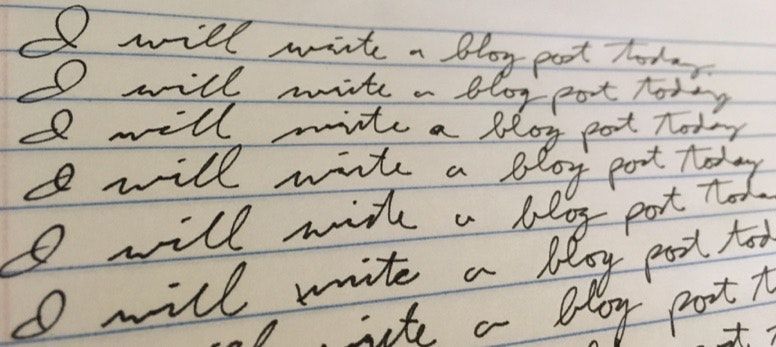 I will write a blog post today.
I will write a blog post today
I will write a blog post today
I will write a blog post today
I will write a blog post toda
I will write a blog post tod
will write a blog post t